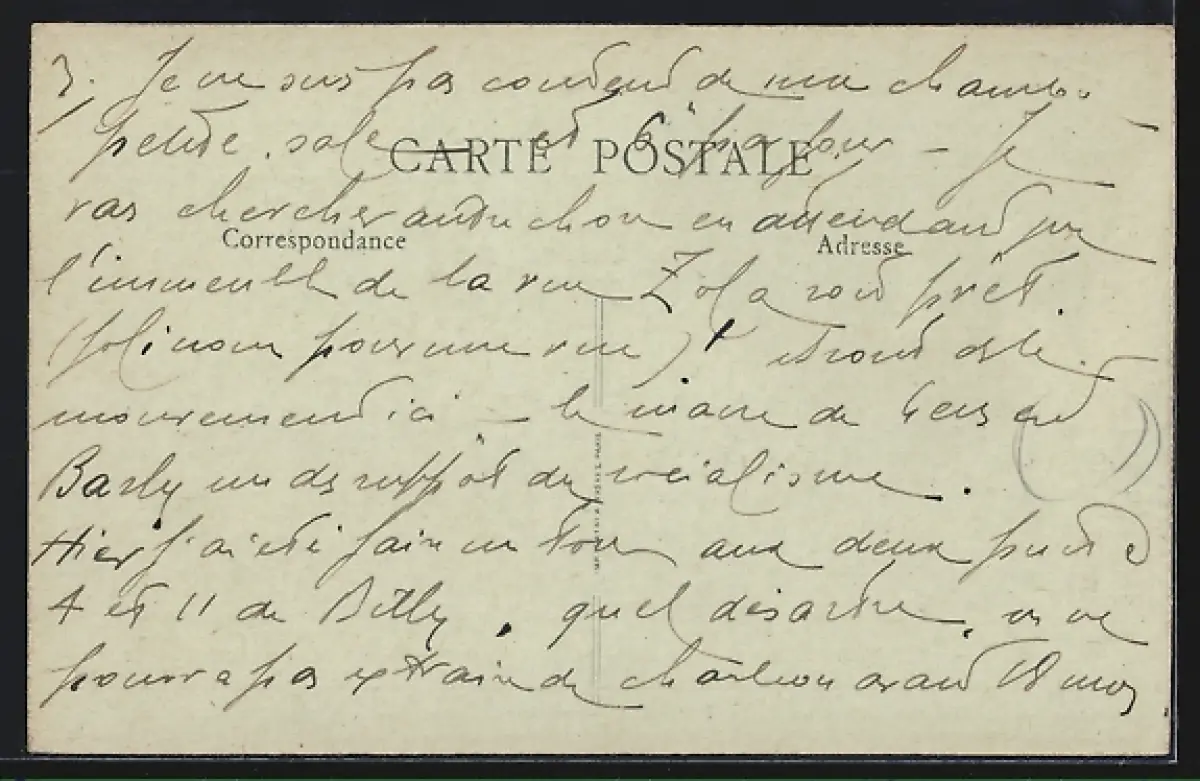 3. Je ne suis pas content de ma chambre
petite, sale et 6f par jour — Je
CARTE POSTALE
vas chercher autre chose en attendant que
Correspondance
Adresse
l'immeuble de la rue Zola soit prêt.
(joli nom pour une rue) étroit
mouvement ici — le maire de Lens est
Basly un des suppôt du socialisme.
Hier j'ai été faire un tour aux deux puits
4 et 11 de Billy, quel désastre, on ne
pourra pas extraire de charbon avant 18 mois